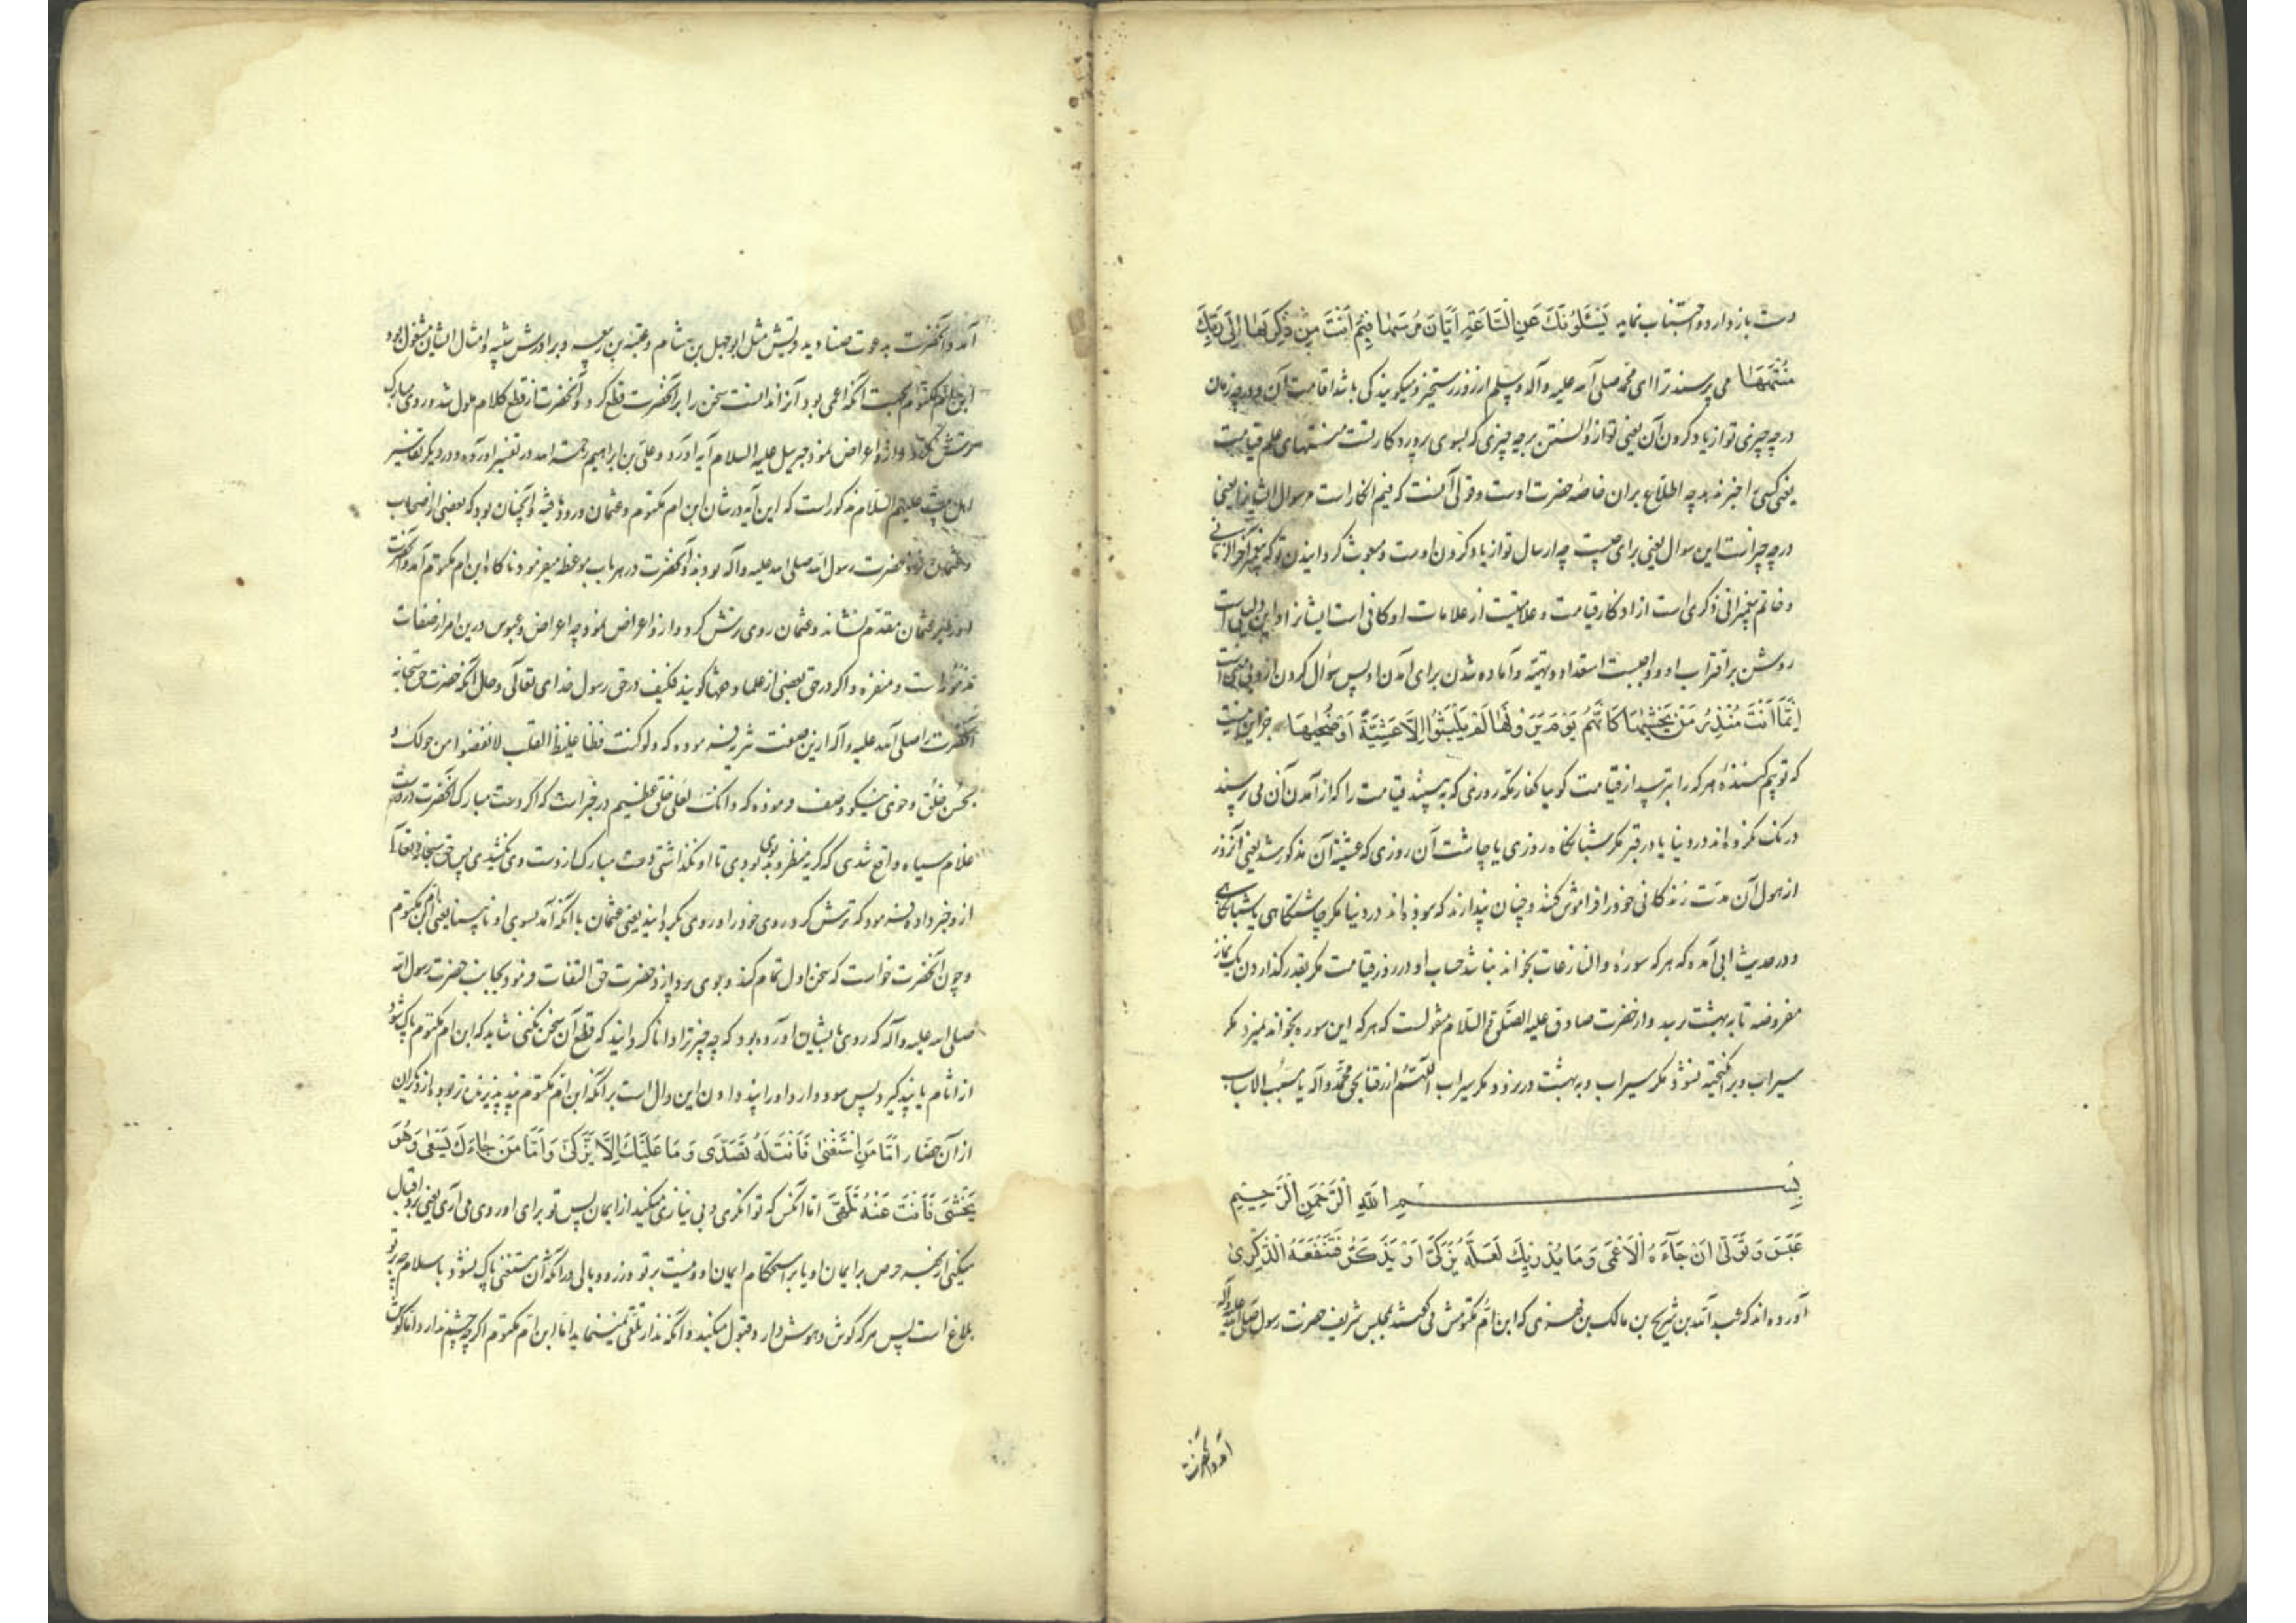 دست باز دارد و اجتناب نماید یَسْئَلُونَكَ عَنِ السَّاعَةِ اَیَّانَ مُرْسٰهَا فِیْمَ اَنْتَ مِنْ ذِکْرٰىهَا اِلٰى رَبِّكَ
مُنْتَهٰهَا می پرسند ترا ای محمد صلی الله علیه و آله و سلم از روز رستخیز و میکویند کی باشد اقامت آن و در چه زمان
در چه چیزی تو از یاد کردن آن یعنی تو از دانستن بر چه چیزی که بسوی پروردکار تست منتهای علم قیامت
یعنی کسی را خبر ندهد چه اطلاع بران خاصه حضرت اوست و قولی آنست که فیم انکار است مر سوال ایشانرا یعنی
در چه چیز است این سوال یعنی برای چیست چه ارسال تو از یاد کردن اوست و مبعوث کردانیدن تو که پیغمبر آخر الزمانی
و خاتم پیغمبرانی ذکری است از اذکار قیامت و علامتیست از علامات او کافی است ایشانرا و این دلیلیست
روشن بر اقتراب او و واجبست استعداد و تهیه و آماده شدن برای آمدن او پس سوال کردن از وی
اِنَّمَا اَنْتَ مُنْذِرُ مَنْ یَخْشٰهَا کَاَنَّهُمْ یَوْمَ یَرَوْنَهَا لَمْ یَلْبَثُوا اِلَّا عَشِیَّةً اَوْ ضُحٰهَا جز این نیست
که تو بیم کننده هر که را بترسد از قیامت کویا کفار مکه روزی که به بینند قیامت را که از آمدن آن می پرسند
درنک نکرده اند در دنیا یا در قبر مکر شبانکاه روزی یا چاشت آن روزی که عشیه آن مذکور شد یعنی آنروز
از هول آن مدت زندکانی خود را فراموش کنند و چنان پندارند که نبوده اند در دنیا مکر چاشتکاهی یا شبانکاهی
و در حدیث ابی آمده که هر که سوره والنازعات بخواند نباشد حساب او در روز قیامت مکر بقدر کذاردن یک نماز
مفروضه تا به بهشت رسد و از حضرت صادق علیه الصلوة والسلام منقولست که هر که این سوره بخواند نمیرد مکر
سیراب و برانکیخته نشود مکر سیراب و به بهشت در نرود مکر سیراب اللهم ارزقنا بحق محمد و آله یا مسبب الاسباب
بِسْمِ اللهِ الرَّحْمٰنِ الرَّحِیْمِ
عَبَسَ وَ تَوَلّٰى اَنْ جَآءَهُ الْاَعْمٰى وَ مَا یُدْرِیْكَ لَعَلَّهُ یَزَّکّٰى اَوْ یَذَّکَّرُ فَتَنْفَعَهُ الذِّکْرٰى
آورده اند که عبد الله بن شریح بن مالک بن فهری که ابن ام مکتومش می کفتند بمجلس شریف حضرت رسول صلی الله علیه و آله
آمد و آنحضرت
آمد و آنحضرت به دعوت صنادید قریش مثل ابوجهل بن هشام و عتبه بن ربیعه و برادرش شیبه و امثال ایشان مشغول بود
ابن ام مکتوم بجهت آنکه اعمی بود آنرا ندانست سخن را بر آنحضرت قطع کرد و آنحضرت از قطع کلام ملول شد و روی مبارک
ترش کرد و از و اعراض نمود جبرییل علیه السلام آیه آورد و علی بن ابراهیم رحمه الله در تفسیر آورده و در دیکر تفاسیر
اهل بیت علیهم السلام مذکور است که این آیه در شان ابن ام مکتوم و عثمان ورود یافته و آنچنان بود که بعضی از اصحاب
و عثمان نزد حضرت رسول الله صلی الله علیه و آله بودند و آنحضرت در هر باب موعظه میفرمود ناکاه ابن ام مکتوم آمد و آنحضرت
او را بر عثمان مقدم نشاند و عثمان روی ترش کرد و از و اعراض نمود چه اعراض و عبوس درین امر از صفات
مذمومه است و منفره و اکر در حق بعضی از علما و فقها کویند فکیف در حق رسول خدای تعالی و حال آنکه حضرت حق سبحانه
آنحضرت را صلی الله علیه و آله ازین صفت تنزیه فرموده که و لو کنت فظا غلیظ القلب لانفضوا من حولک و
بحسن خلق و خوی نیکو وصف فرموده که و انک لعلی خلق عظیم در خبر است که اکر دست مبارک آنحضرت در دست
غلام سیاه واقع شدی که کریه منظر و بد بوی بودی تا او نکذاشتی دست مبارک از دست وی نکشیدی پس حق سبحانه و تعالی
ازو خبر داده فرمود که ترش کرد روی خود را و روی بکردانید یعنی عثمان با آنکه آمد بسوی او نابینا یعنی ابن ام مکتوم
و چون آنحضرت خواست که سخن اول تمام کند و بوی پردازد حضرت حق التفات فرمود بجانب حضرت رسول الله
صلی الله علیه و آله که روی بایشان آورده بود که چه چیز ترا دانا کردانید که قطع آن سخن نکنی شاید که ابن ام مکتوم پاک شود
از آثام یا پند کیرد پس سود دارد او را پند دادن این دال است بر آنکه ابن ام مکتوم پند پذیرنده تر بود از دیکران
از آن حضار اَمَّا مَنِ اسْتَغْنٰى فَاَنْتَ لَهُ تَصَدّٰى وَ مَا عَلَیْكَ اَلَّا یَزَّکّٰى وَ اَمَّا مَنْ جَآءَكَ یَسْعٰى وَ هُوَ
یَخْشٰى فَاَنْتَ عَنْهُ تَلَهّٰى اما آنکس که توانکری و بی نیازی میکند از ایمان پس تو برای او روی می آری یعنی برو اقبال
میکنی از جهت حرص بر ایمان او یا بر استحکام ایمان او و نیست بر تو وزر و وبالی در آنکه آن مستغنی پاک نشود باسلام چه بر تو
بلاغ است پس هر که کوش و هوش دارد قبول میکند و آنکه ندارد تلقی نمینماید اما ابن ام مکتوم اکر چه چشم ندارد اما کوش